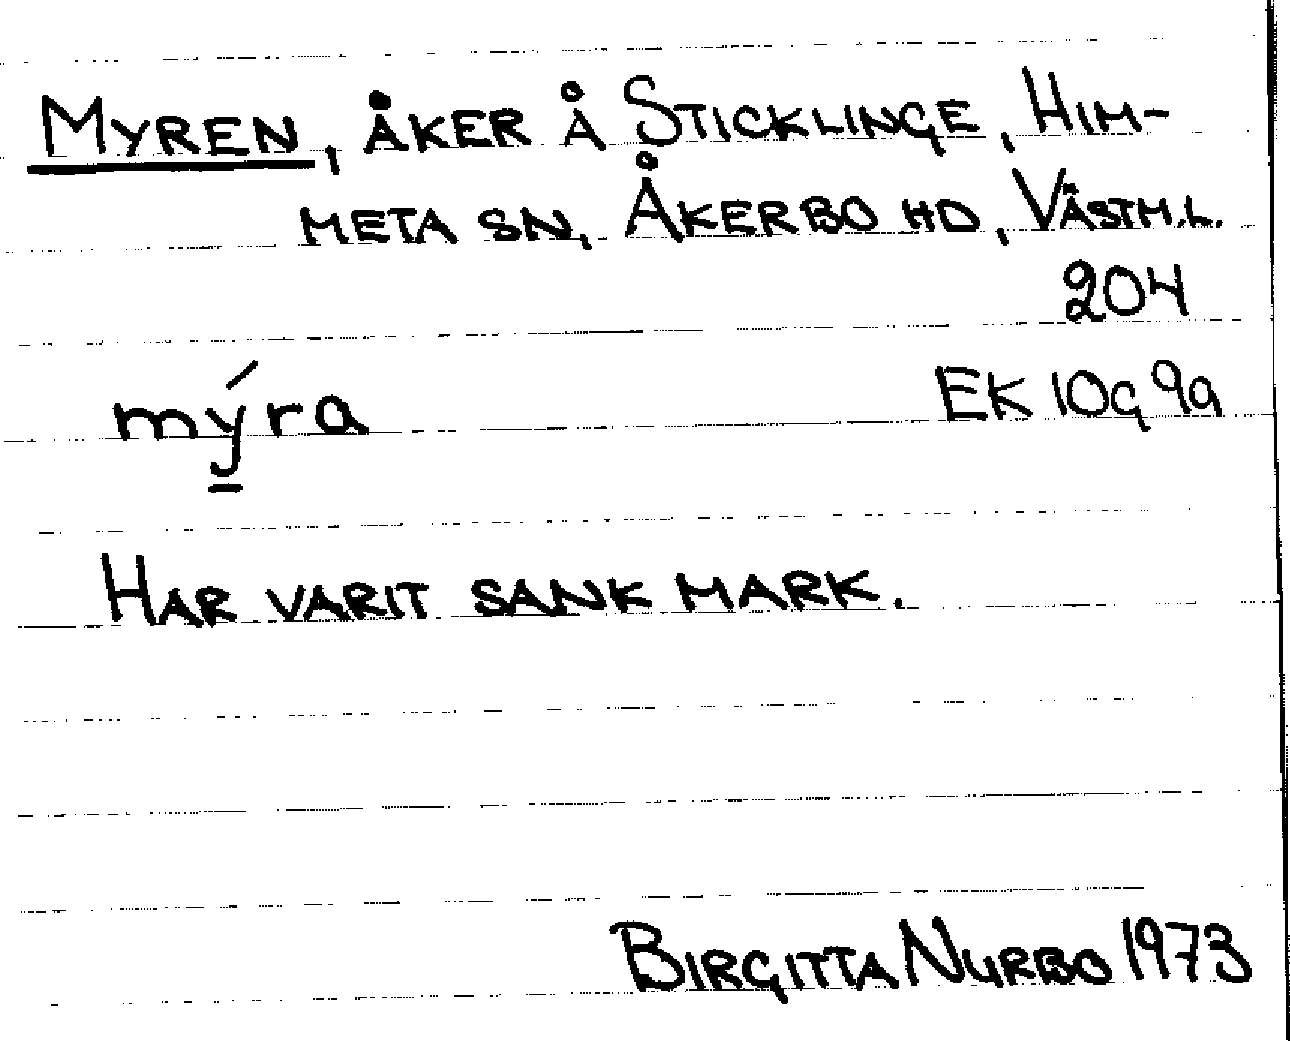 MYREN, ÅKER Å STICKLINGE, HIM-
META SN, ÅKERBO HD, VÄSTM.L.
204
mý̱ra EK 10g 9a
HAR VARIT SANK MARK.
BIRGITTA NURBO 1973